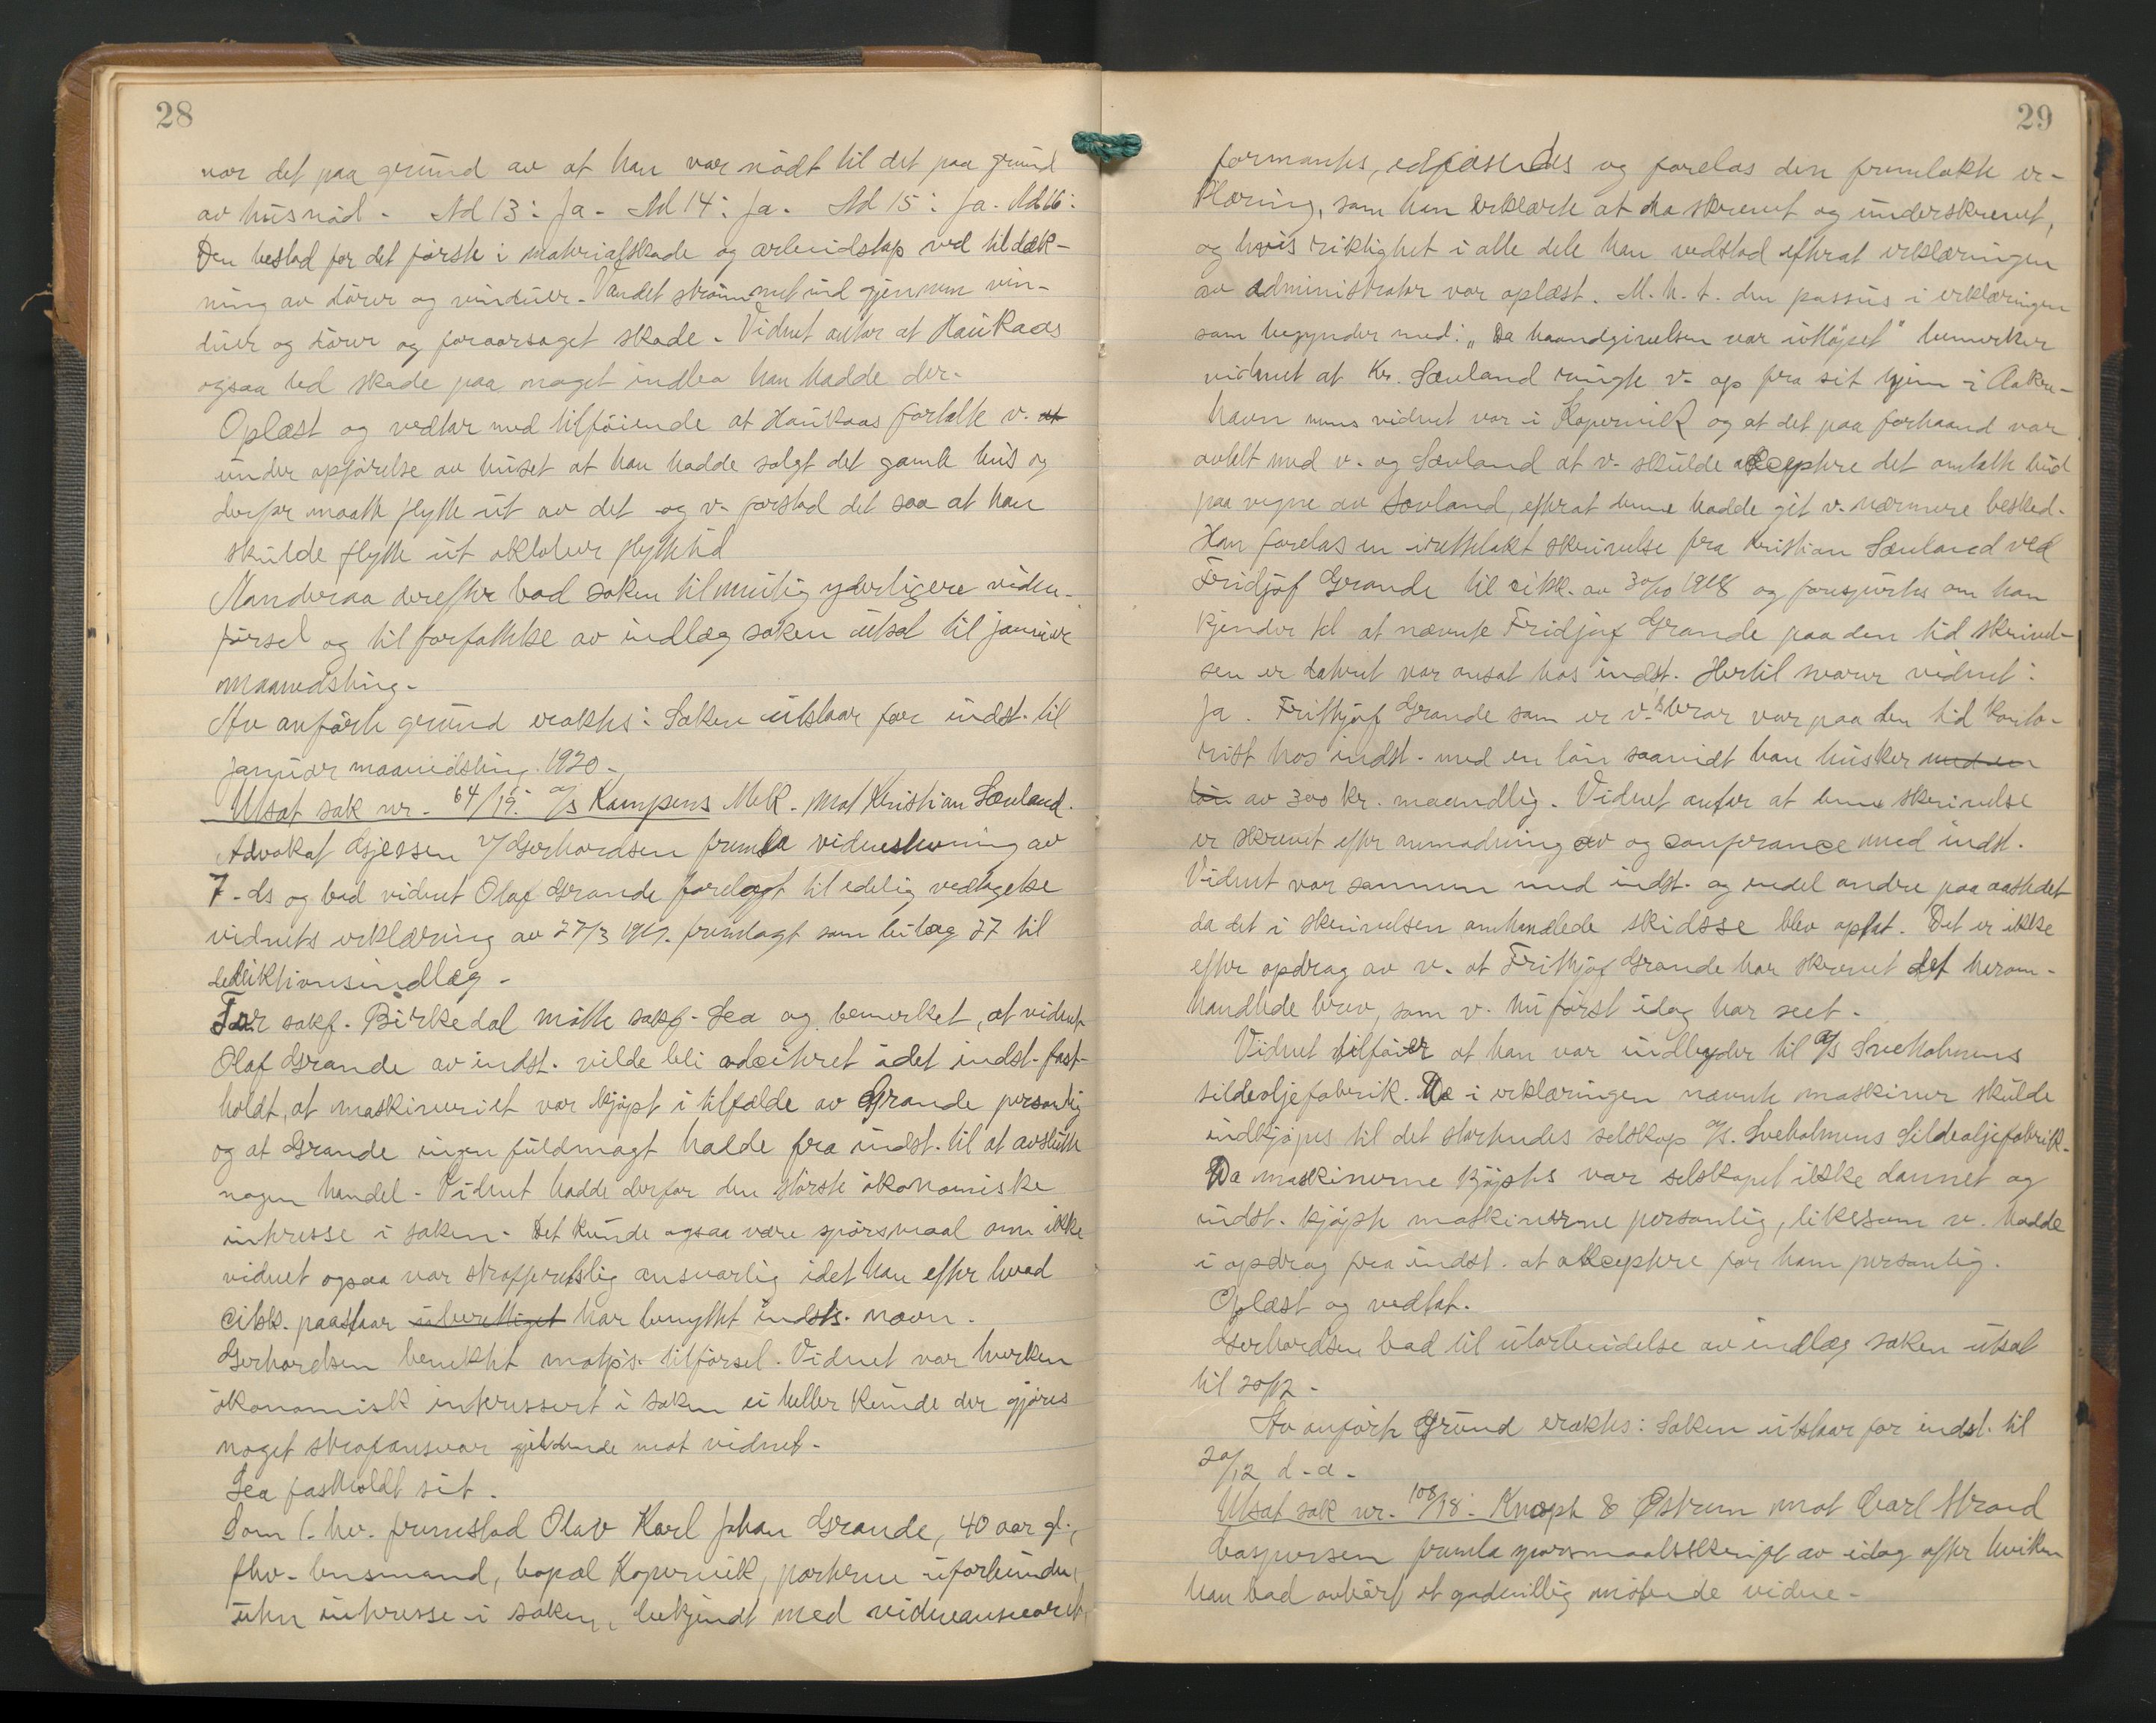 28
var det paa grund av at han var nödt til det paa grund
av husnöd. Ad 13: Ja. Ad 14: Ja. Ad 15: Ja. Ad 16:
Den bestod for det förste i materialskade og arbeidstap ved tildæk-
ning av dörer og vinduer. Vandet strömmet ind gjennem vin-
duer og dörer og foraarsaget skade. Vidnet antar at Haukaas
ogsaa led skade paa noget indbo han hadde der.
Oplæst og vedtat med tilföiende at Haukaas fortalte v. at
under opförelse av huset at han hadde solgt det gamle hus og
derfor maatte flytte ut av det og v. forstod det saa at han
skulde flytte ut oktober flyttetid
Manderaa derefter bad saken til mulig yderligere vidne-
försel og til forfattelse av indlæg saken utsat til januar
maanedsting.
Av anförte grund eraktes: Saken utstaar for indst. til
januar maanedsting 1920.
Utsat sak nr. 64/19. A/S Kampens Mek. mot Kristian Sævland.
Advokat Gjessen v/ Gerhardsen fremla vidnestevning av
7. ds og bad vidnet Olaf Grande forelagt til edelig vedtagelse
vidnets erklæring av 27/3 1919. fremlagt som bilag 27 til
deduktionsindlæg.
For sakf. Birkedal mötte sakf. Lea og bemerket, at vidnet
Olaf Grande av indst. vilde bli adciteret idet indst. fast-
holdt, at maskineriet var kjöpt i tilfælde av Grande personlig
og at Grande ingen fuldmagt hadde fra indst. til at avslutte
nogen handel. Vidnet hadde derfor den störste ökonomiske
interesse i saken. Det kunde ogsaa være spörsmaal om ikke
vidnet ogsaa var strafferetslig ansvarlig idet han efter hvad
citsk. paastaar uberettiget har benyttet indsts. navn.
Gerhardsen benektet motp's. tilförsel. Vidnet var hverken
ökonomisk interessert i saken ei heller kunde der gjöres
noget strafansvar gjeldende mot vidnet.
Lea fastholdt sit.
Som 1. hv. fremstod Olav Karl Johan Grande, 40 aar gl.,
fhv. lensmand, bopæl Kopervik, parterne uforbundet,
uten interesse i saken, bekjendt med vidneansvaret,
29
formantes, edfæstedes og forelas den fremlakte er-
klæring, som han erklærte at ha skrevet og underskrevet,
og hvis riktighet i alle dele han vedstod efterat erklæringen
av administrator var oplæst. M.h.t. den passus i erklæringen
som begynder med: „Da haandgivelsen var utlöpet" bemerker
vidnet at Kr. Sævland ringte v. op fra sit hjem i Aakre-
havn mens vidnet var i Kopervik og at det paa forhaand var
avtalt med v. og Sævland at v. skulde akceptere det omtalte bud
paa vegne av Sævland, efterat denne hadde git v. nærmere besked.
Han forelas en irettelakt skrivelse fra Kristian Sævland ved
Fridjof Grande til citk. av 30/10 1918 og forespurtes om han
kjender til at nævnte Fridjof Grande paa den tid skrivel-
sen er dateret var ansat hos indst. Hertil svarer vidnet:
Ja. Frithjof Grande som er v.'s bror var paa den tid konto-
rist hos indst. med en lön saavidt han husker med en
lön av 300 kr. maandlig. Vidnet antar at denne skrivelse
er skrevet efter anmodning av og conferance med indst.
Vidnet var sammen med indst. og endel andre paa aastedet
da det i skrivelsen omhandlede skidsse blev optat. Det er ikke
efter opdrag av v. at Frithjof Grande har skrevet det herom-
handlede brev, som v. nu först idag har seet.
Vidnet tilföier at han var indbyder til A/S Sveholmens
sildeoljefabrik. De i erklæringen nævnte maskiner skulde
indkjöpes til det stortendes selskap A/S. Sveholmens Sildeoljefabrik.
Da maskinerne kjöptes var selskapet ikke dannet og
indst. kjöpte maskinerne personlig, likesom v. hadde
i opdrag fra indst. at akceptere for ham personlig.
Oplæst og vedtat.
Gerhardsen bad til utarbeidelse av indlæg saken utsat
til 20/12.
Av anförte grund eraktes: Saken utstaar for indst. til
20/12 d.a.
Utsat sak nr. 108/18. Knoph & Östrem mot Carl Strand
Caspersen fremla spörsmaalsskrift av idag efter hvilken
han bad avhört et godvillig mötende vidne.